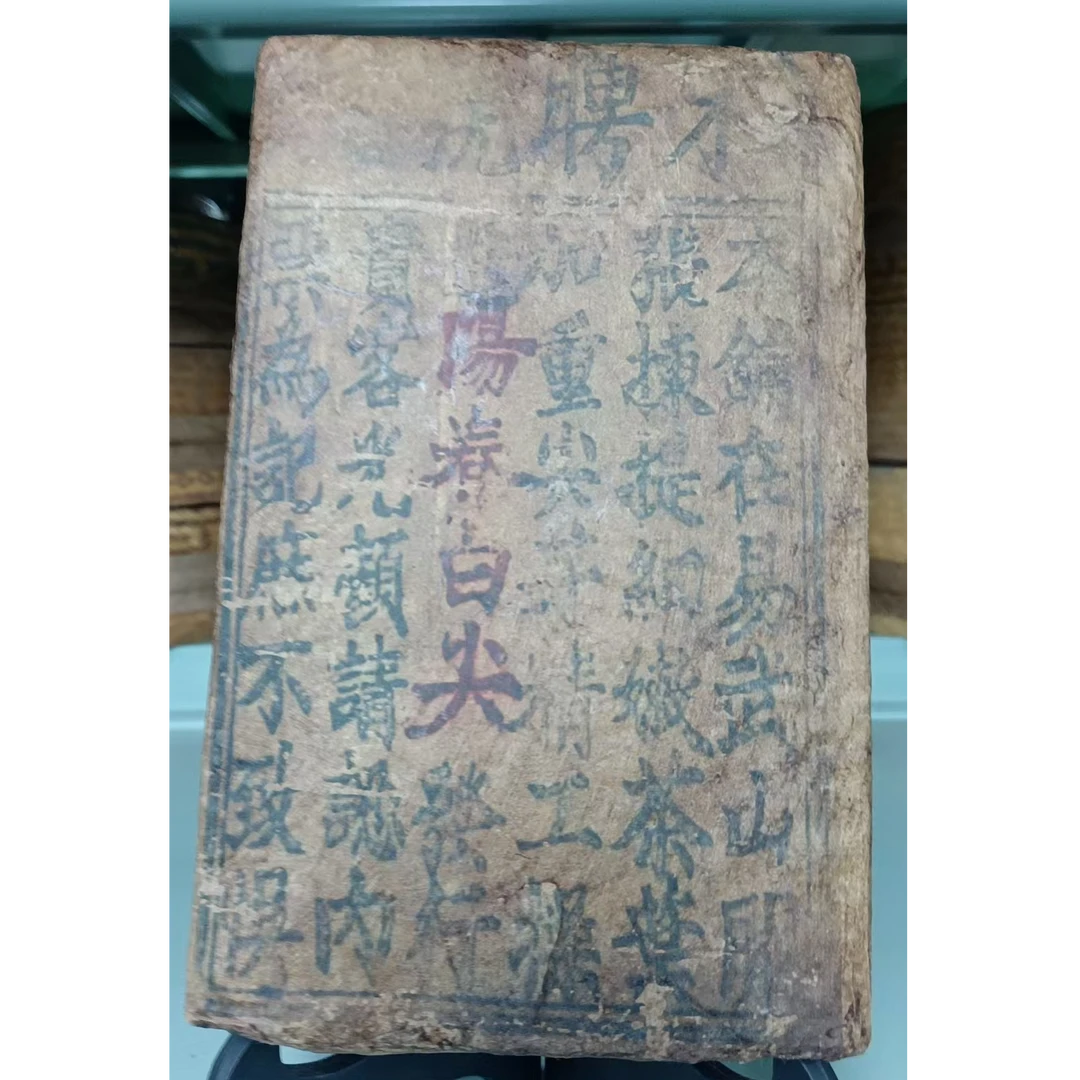 聘元
本鋪在易武山開
張揀提細嫩茶葉
加重尖精工揉
陽春白尖發行
賓客光顧請認內
票為記庶不致誤